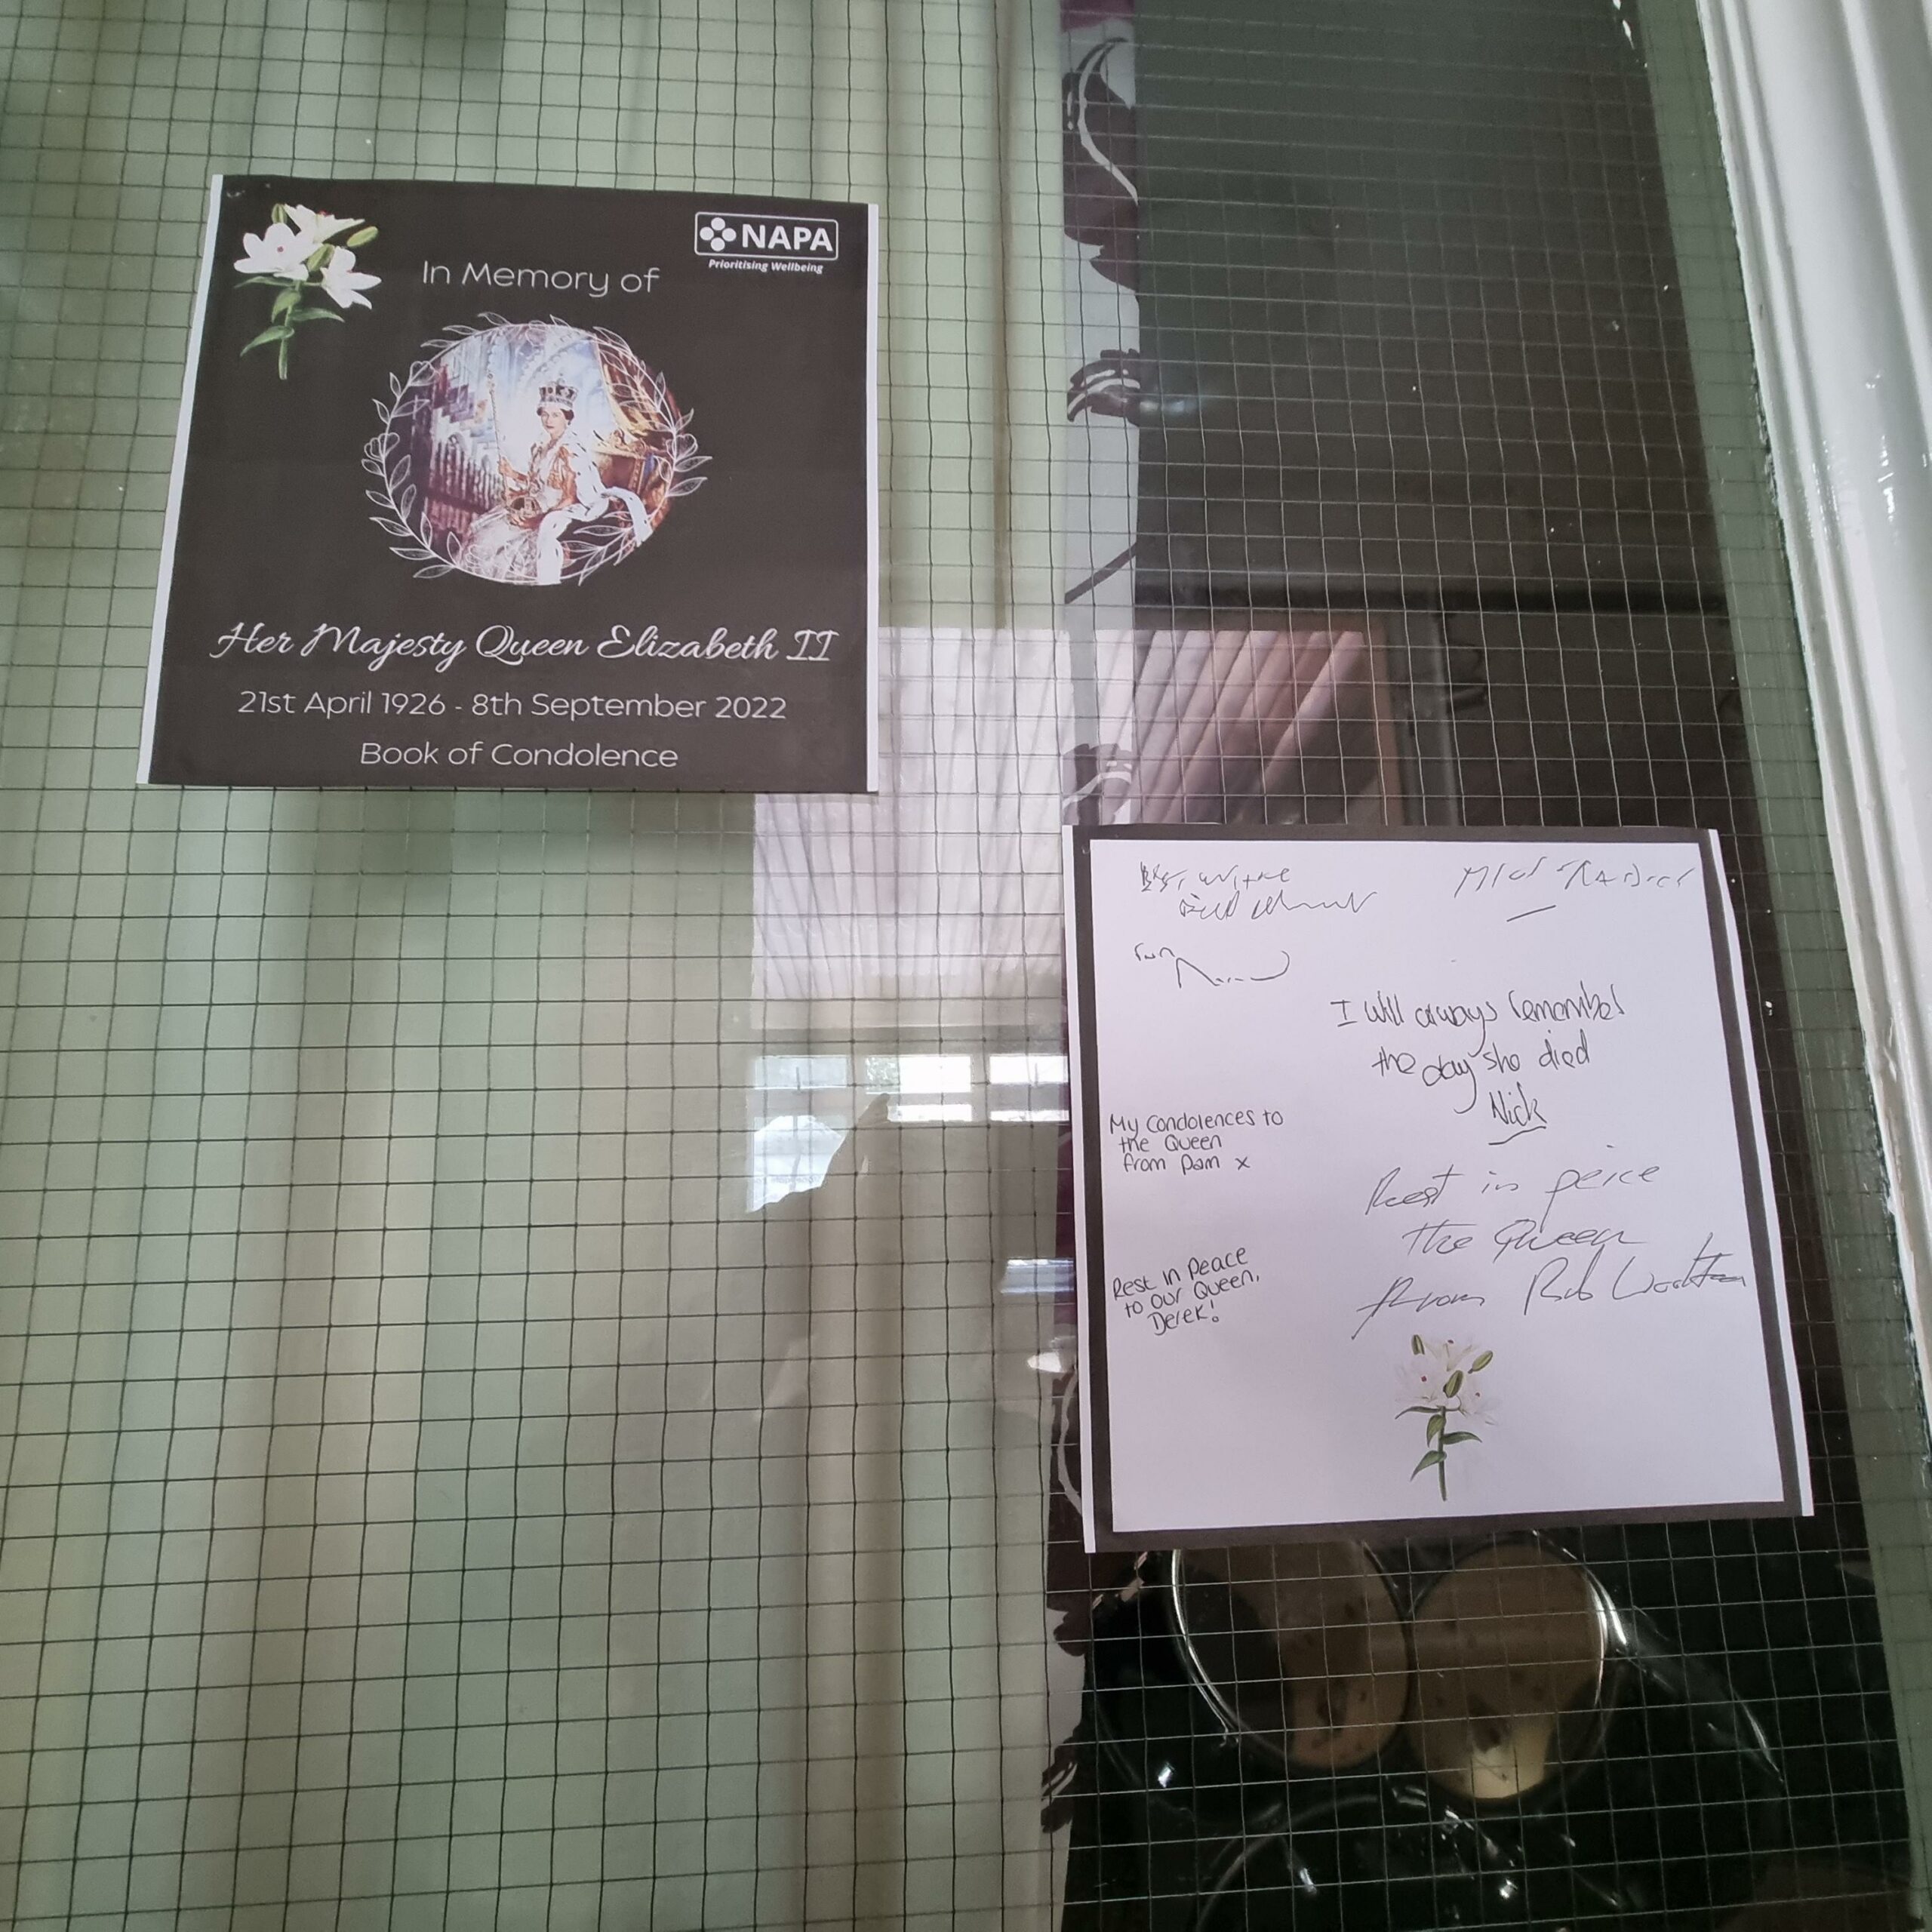 NAPA
Prioritising Wellbeing
In Memory of
Her Majesty Queen Elizabeth II
21st April 1926 - 8th September 2022
Book of Condolence
I will always remember
the day she died
Nick
My Condolences to
the Queen
from Pam x
Rest in peice
the Queen
from Bob
Rest in Peace
to our Queen,
Derek!